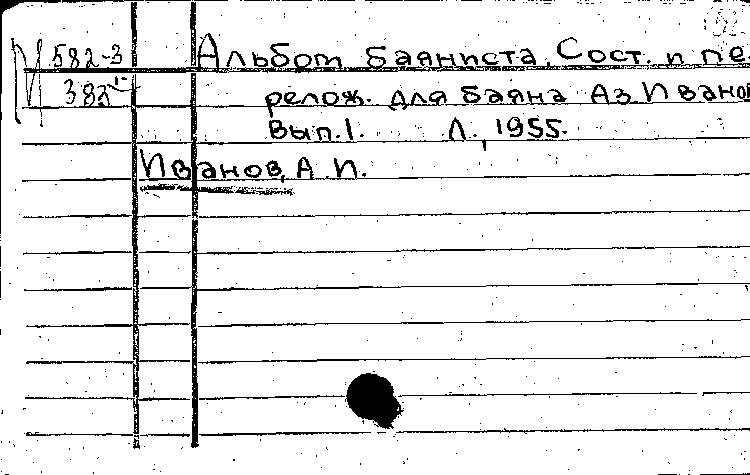 582-3 Альбом баяниста. Сост. и пе
382 релож. для баяна Аз. Ивано
Вып. 1. Л., 1955.
Иванов, А. И.